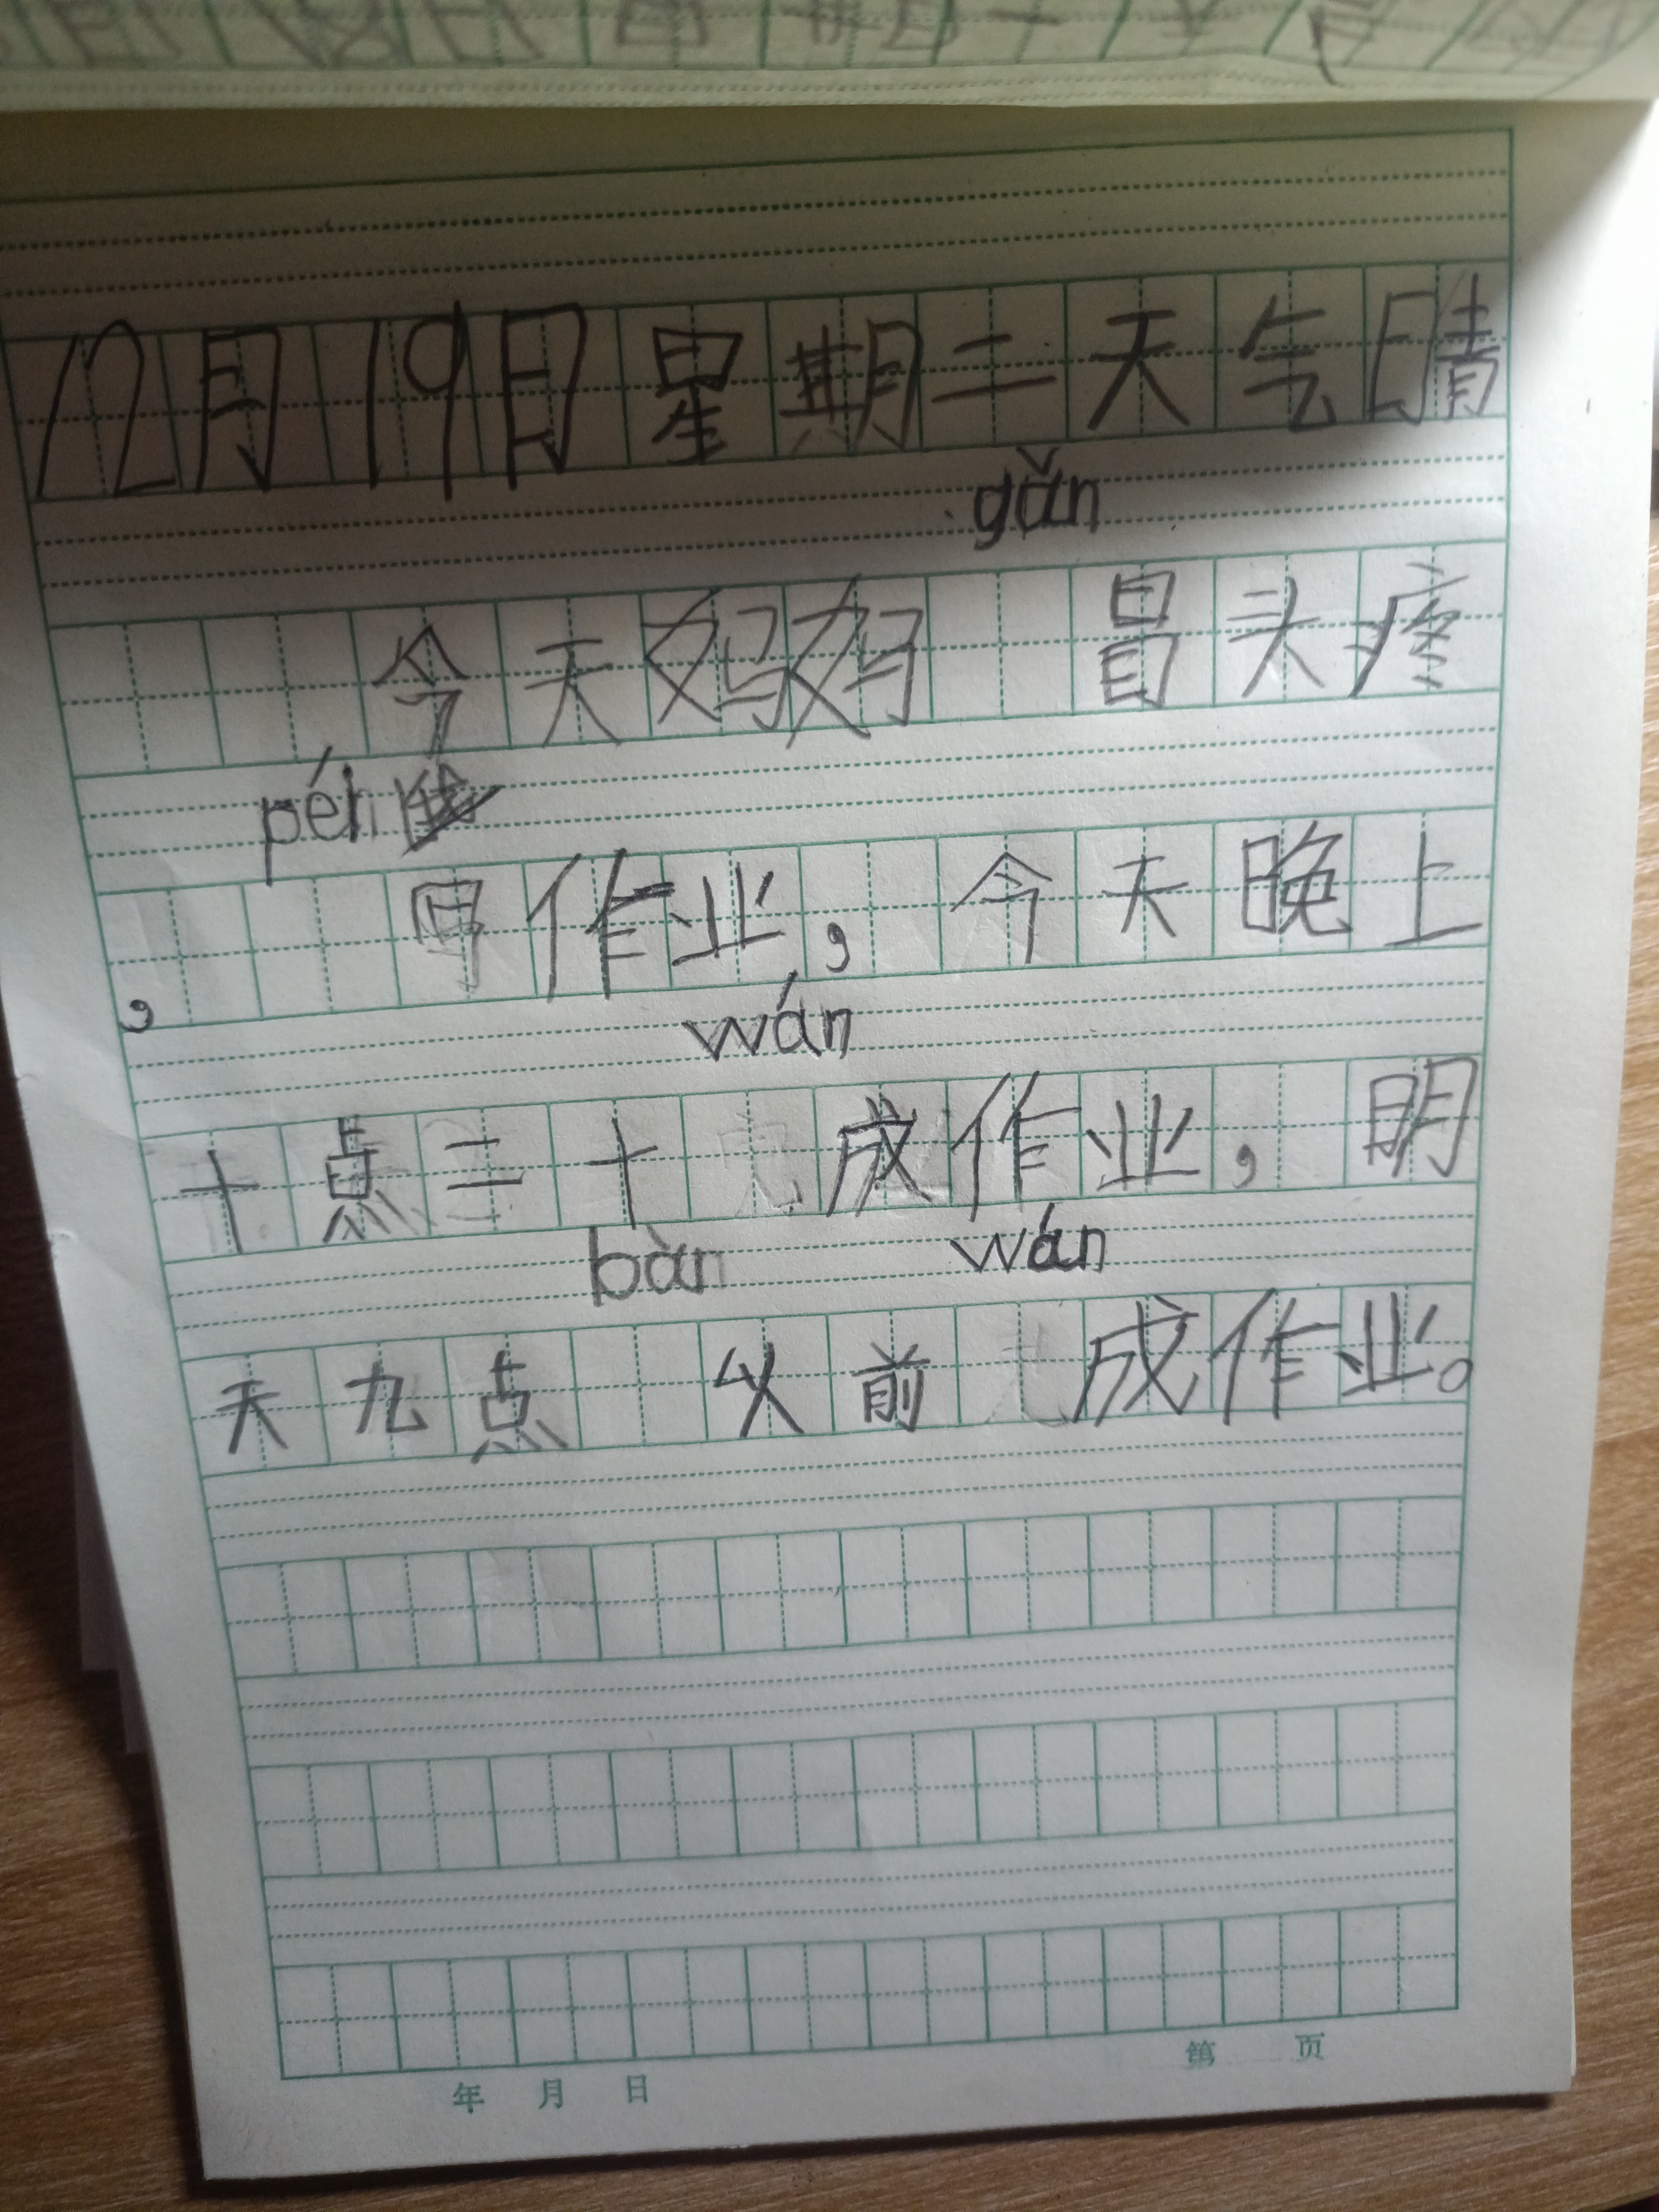 12月19日星期二天气晴
gǎn
今天妈妈 冒头疼
péi
, 写作业,今天晚上
wán
十点二十 成作业,明
bàn wán
天九点 以前 成作业。
年 月 日 第 页